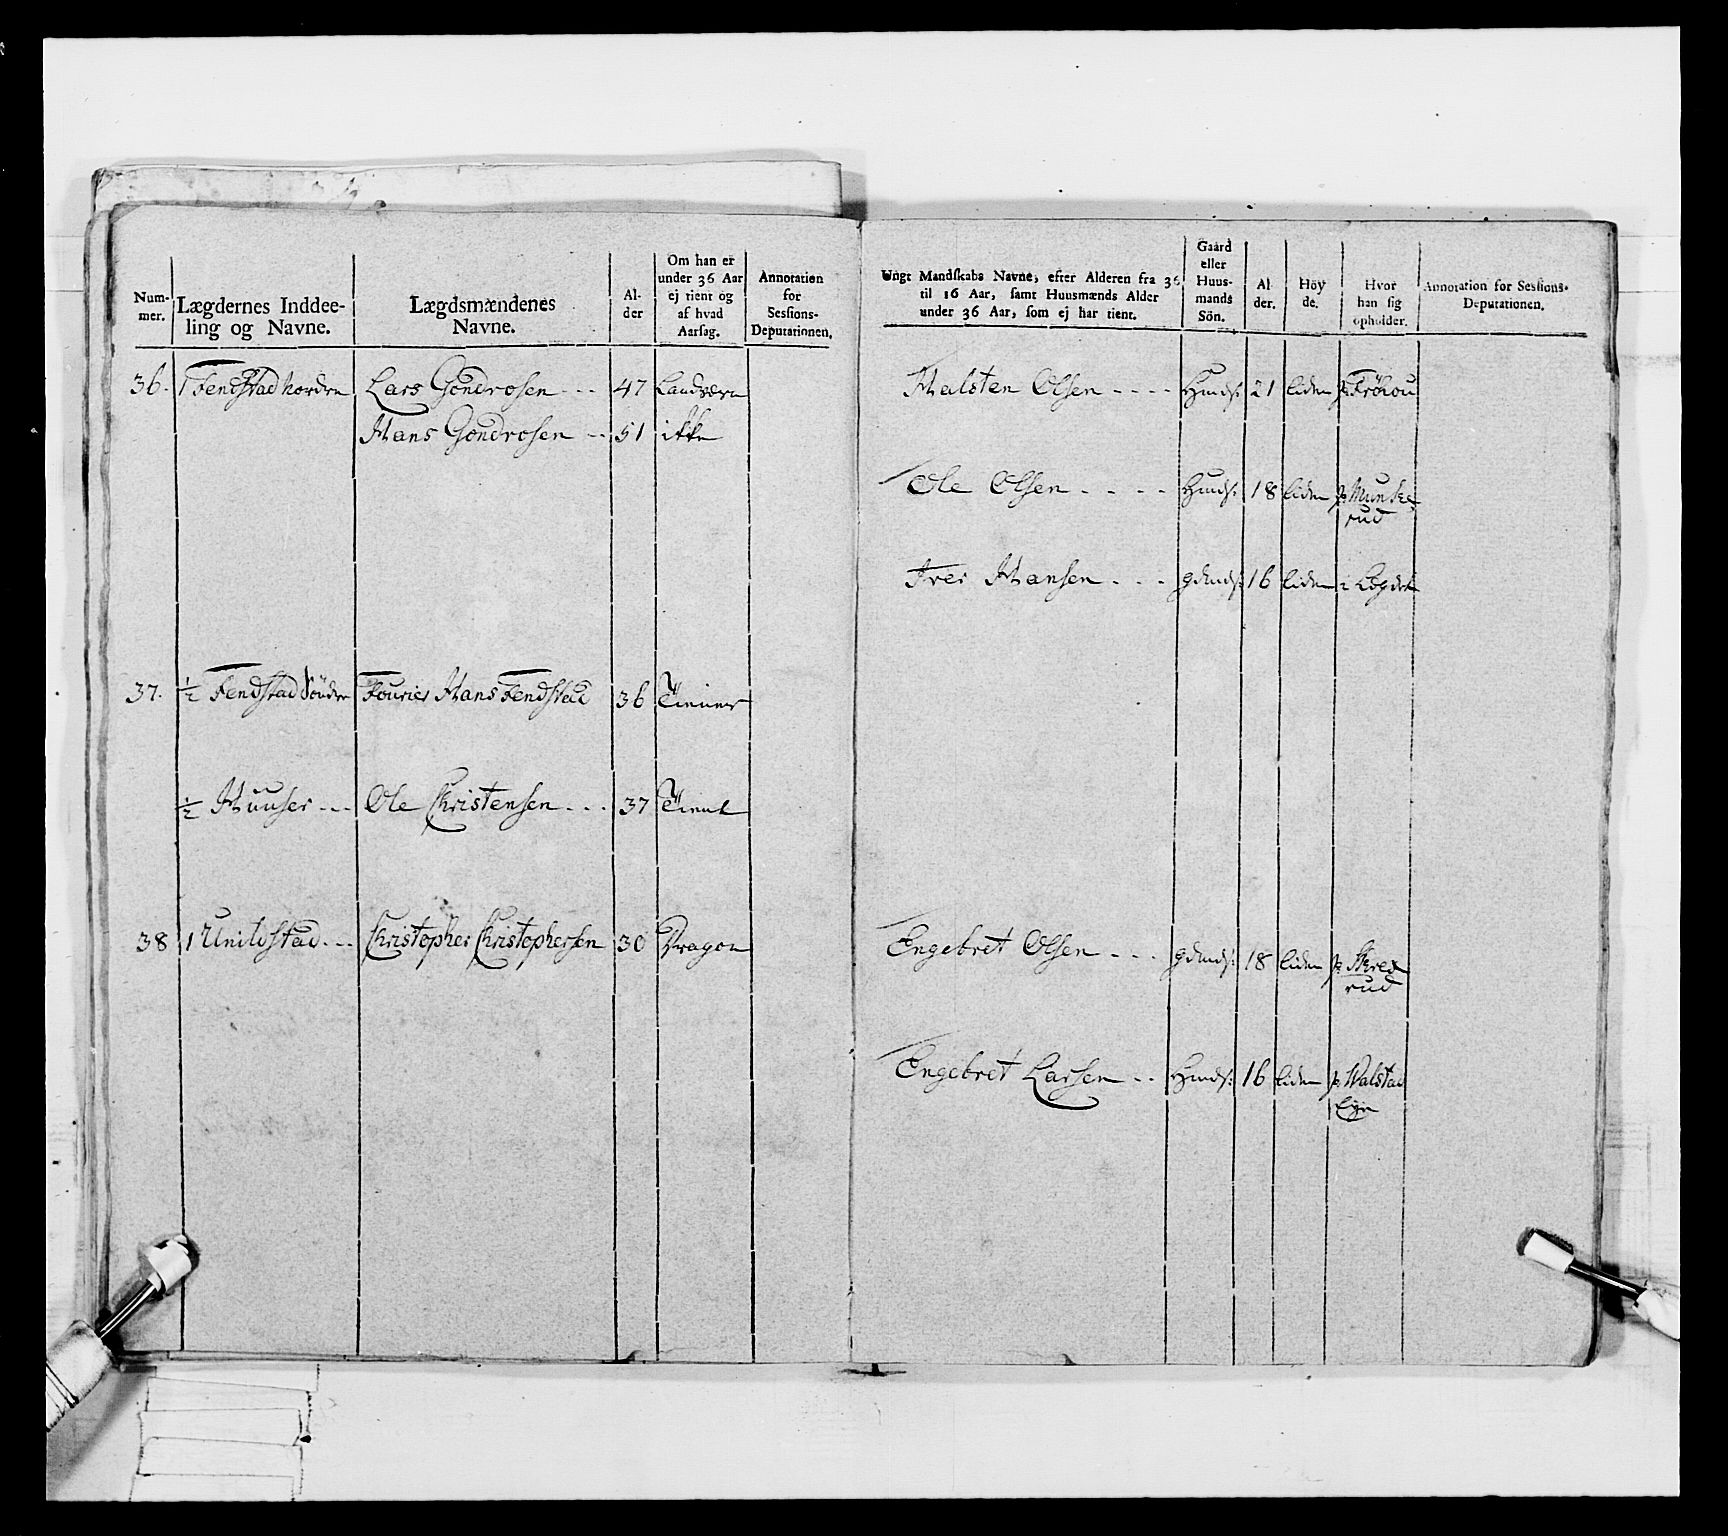 Num-
mer.
Lægdernes Inddee-
ling og Navne.
Lægdsmændenes
Navne.
Al-
der
Om han er
under 36 Aar
ej tient og
af hvad
Aarsag.
Annotation
for
Sessions-
Deputationen.
36. 1 Fendstad Nordre Lars Gondrosen --- 47 Landværn
Hans Gondrosen -- 51 ikke
37. ½ Fendstad Söndre Fourier Hans Fendstad 36 Tiener
½ Huuser --- Ole Christensen --- 37 Tient
38 1 Unildstad --- Christopher Christophersen 30 Dragon
Ungt Mandskabs Navne, efter Alderen fra 36
til 16 Aar, samt Huusmænds Alder
under 36 Aar, som ej har tient.
Gaard
eller
Huus-
mands
Sön.
Al
der.
Höy
de.
Hvor
han sig
opholder.
Annotation for Sessions-
Deputationen.
Halsten Olsen ---- Hmds: 21 liden
Ole Olsen ---- Hmds: 18 liden p Munke
rud
Iver Hansen --- gdmds: 16 liden i Lægdet
Engebret Olsen --- gdmds: 18 liden
rud
Engebret Larsen -- Hmds: 16 liden p Walstad
Eye